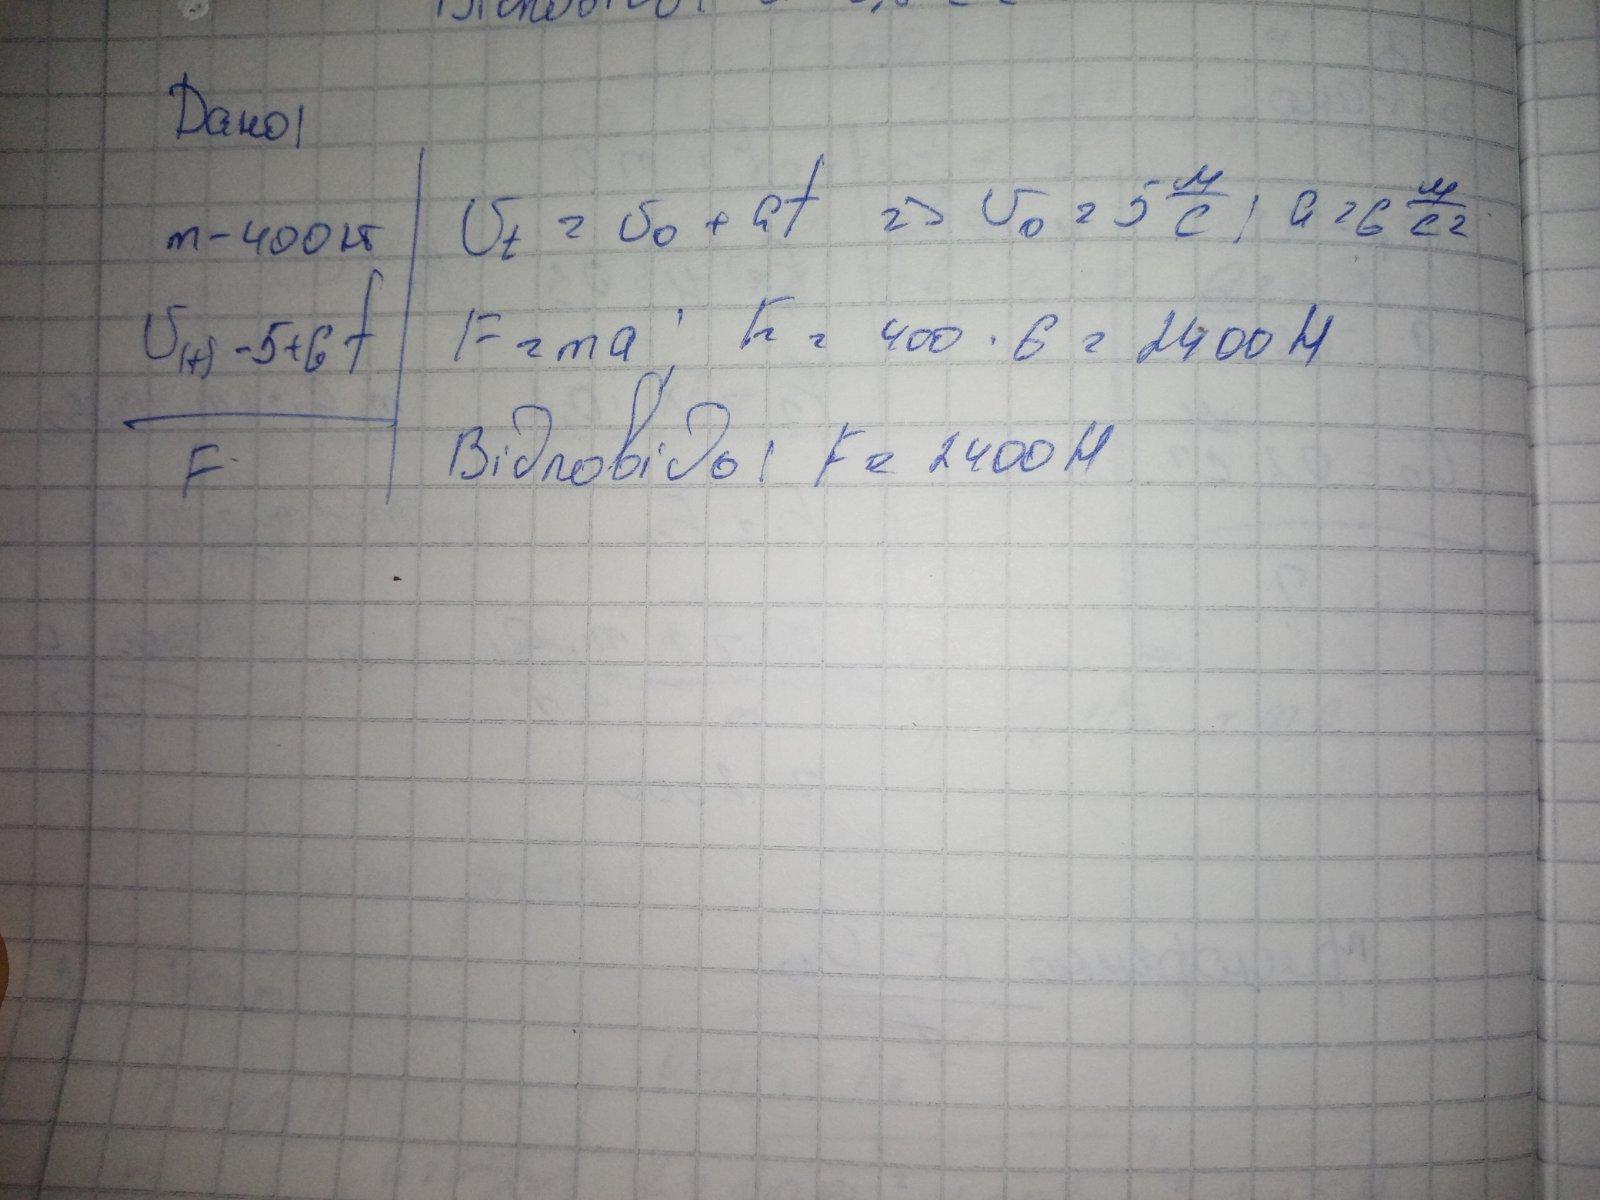 Дано:
m - 400 кг
V(t) - 5+6t
F
Vt = V0 + at => V0 = 5 м/с ; a = 6 м/с2
F = ma ; F = 400 · 6 = 2400 Н
Відповідь: F = 2400 Н